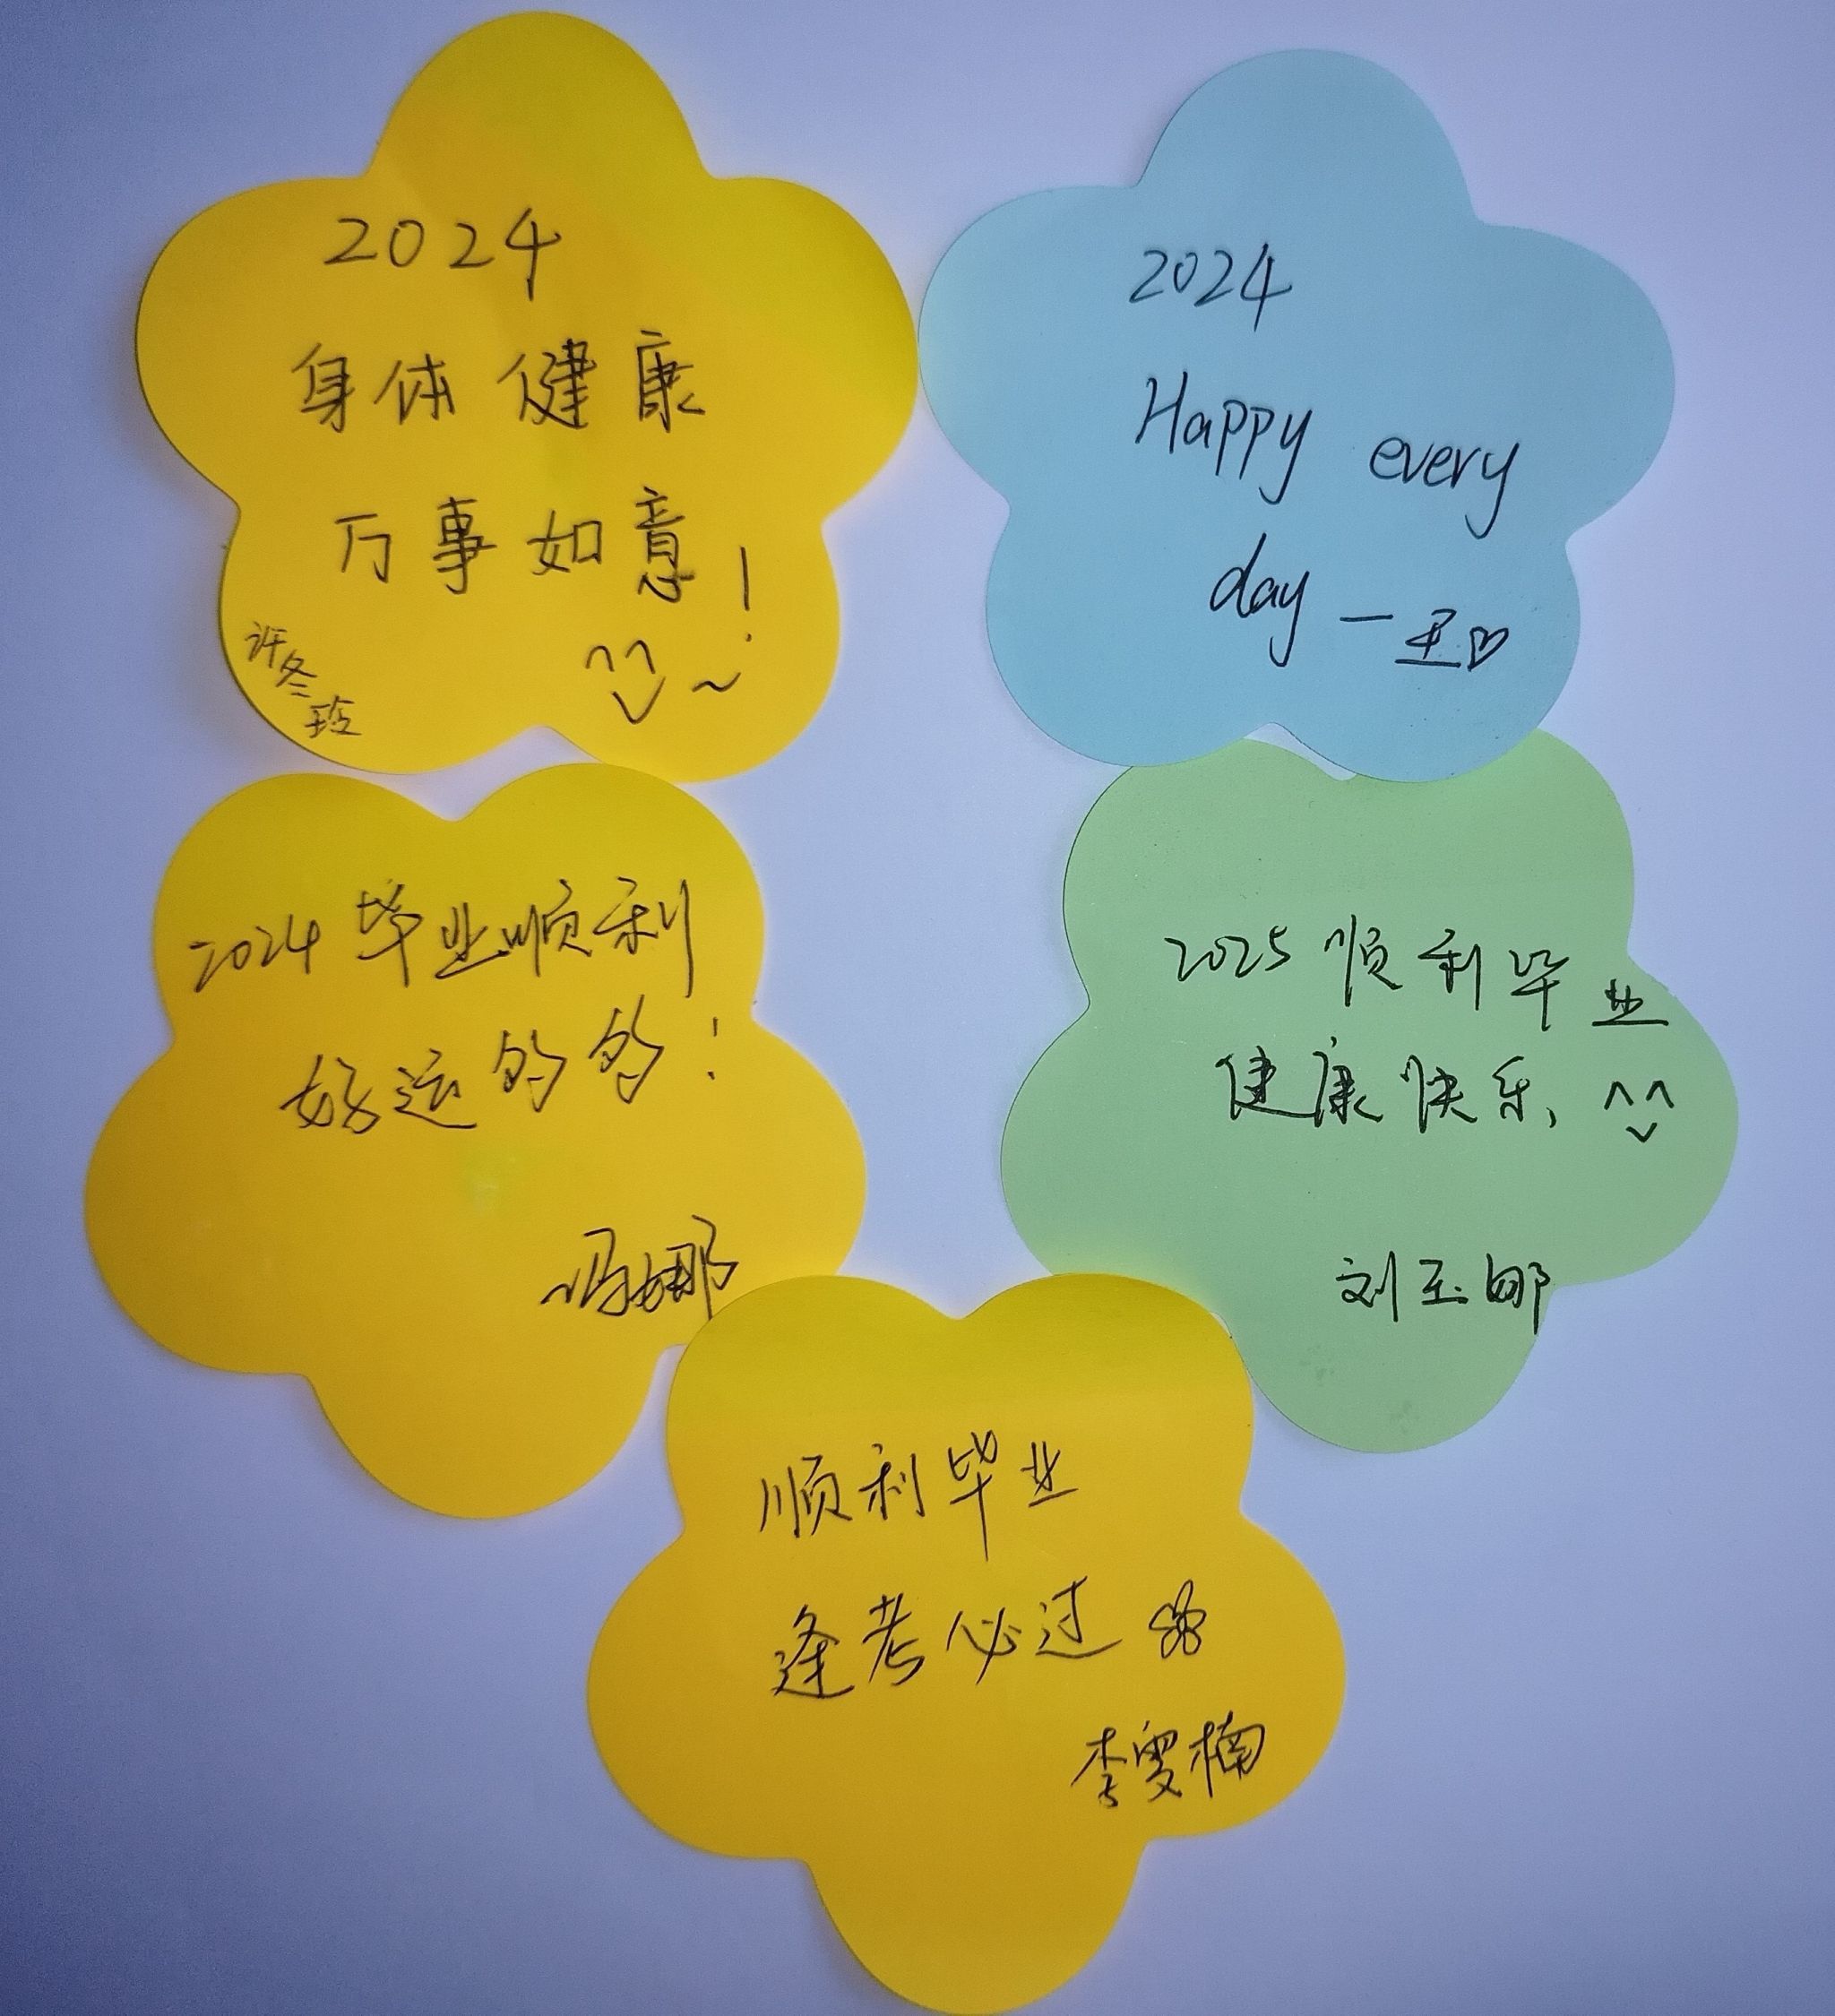 2024
身体健康
万事如意!
许冬玲
2024
Happy every
day —
2024 毕业顺利
好运多多!
冯娜
2025 顺利毕业
健康快乐、
刘玉娜
顺利毕业
逢考必过
李雯楠